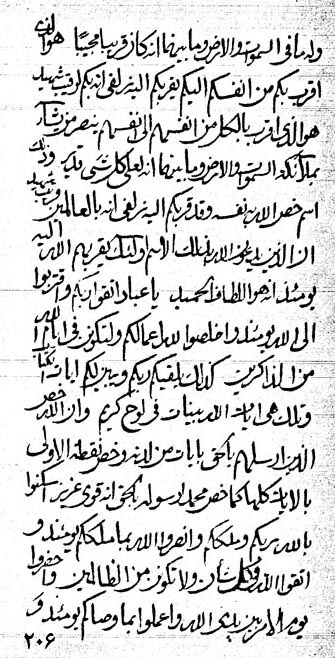 وله ما في السموات والارض وما بينهما انه كان قريبا مجيبا هو الذي
اقرب بكم من انفسكم اليكم يقربكم الي لعي انه بكم لرقيب شهيد
هو الذي اقرب بالكل من انفسهم الى انفسهم ينصر من يشاء
بملائكة السموات والارض وما بينهما انه لعلى كل شيء قدير وذلك
اسم خص الله به نفسه وقد قربكم اليه انه بالعالمين رقيب شهيد
ان الذين يدعون الله بذلك الاسم اولئك يقربهم الله اليه
يومئذ انه هو اللطاف الحميد يا عباد اتقوا ربكم وتقربوا
الى الله يومئذ واخلصوا لله اعمالكم ولتكونن في ايام الله
من الذاكرين كذلك يلقيكم ربكم ويبين لكم ايات
وتلك هي ايات الله بينات في لوح كريم وان الله خص
الذين ارسلهم بالحق بايات من لدنه وخص نقطة الاولى
بالايات كلها كما خص محمد رسوله بالحق انه قوي عزيز امنوا
بالله ربكم وانصروا الله بما ملككم يومئذ و
اتقوا الله في كل شان ولا تكونن من الظالمين واحضروا
يوم الامر بين يدي الله واعملوا بما وصاكم يومئذ و
٢٠٦